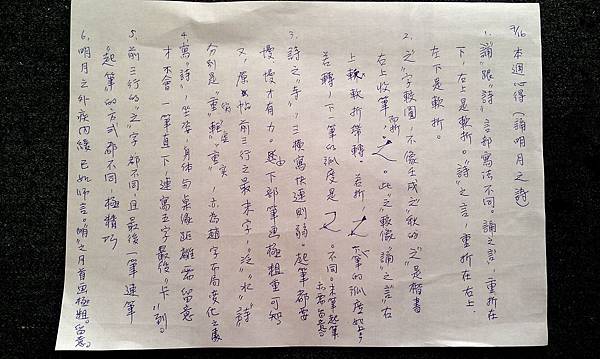 7/16 本週心得(誦明月之詩)
1. "誦"跟"詩"言部寫法不同。誦之言,重折在
下,右上是軟折。"詩"之言,重折在右上
左下是軟折。
2. "之"字較圓,不像壬戌之秋的"之"是楷書
右上收筆,之。此"之"較像"誦"之言"右
上軟折
若轉,下一筆的弧度是之。不同。末筆起筆
亦需留意
3. 詩之"寺",三橫寫快速則弱。起筆都要
慢慢才有力。下部筆画極粗重可知
又,原帖前三行之最末字,"泛""水""詩"
分別是"重""輕""重",亦為趙字布局變化之處
4. 寫"詩",坐姿,身体与桌緣距離需留意
才不會一筆直下,連寫五字最後"卡"到。
5. 前三行的"之"字都不同,且最後一筆連筆
起筆的方式都不同,極精巧
6. 明月之外疾因緣已如師言。"明"之月首画極粗。留意。